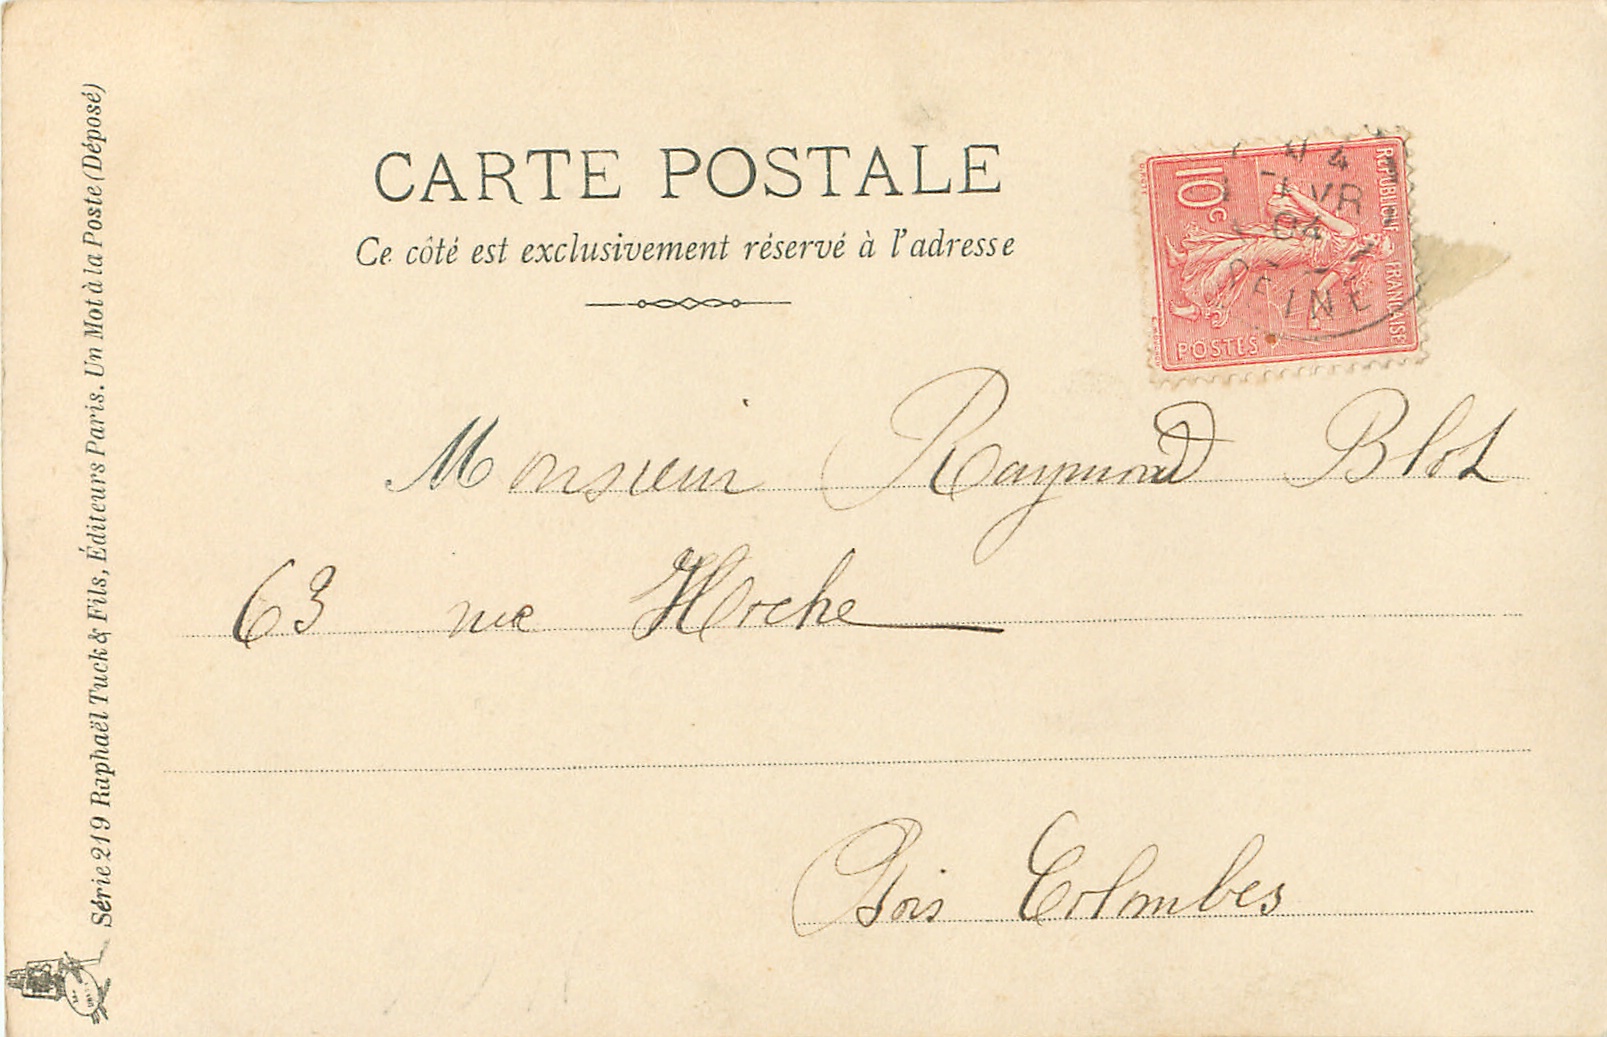 CARTE POSTALE
Ce côté est exclusivement réservé à l'adresse
RÉPUBLIQUE FRANÇAISE
10 c
POSTES
4
AVR
04
SEINE
Monsieur Raymond Blot
63 rue Hoche
Bois Colombes
Série 219 Raphaël Tuck & Fils, Éditeurs Paris. Un Mot à la Poste (Déposé)